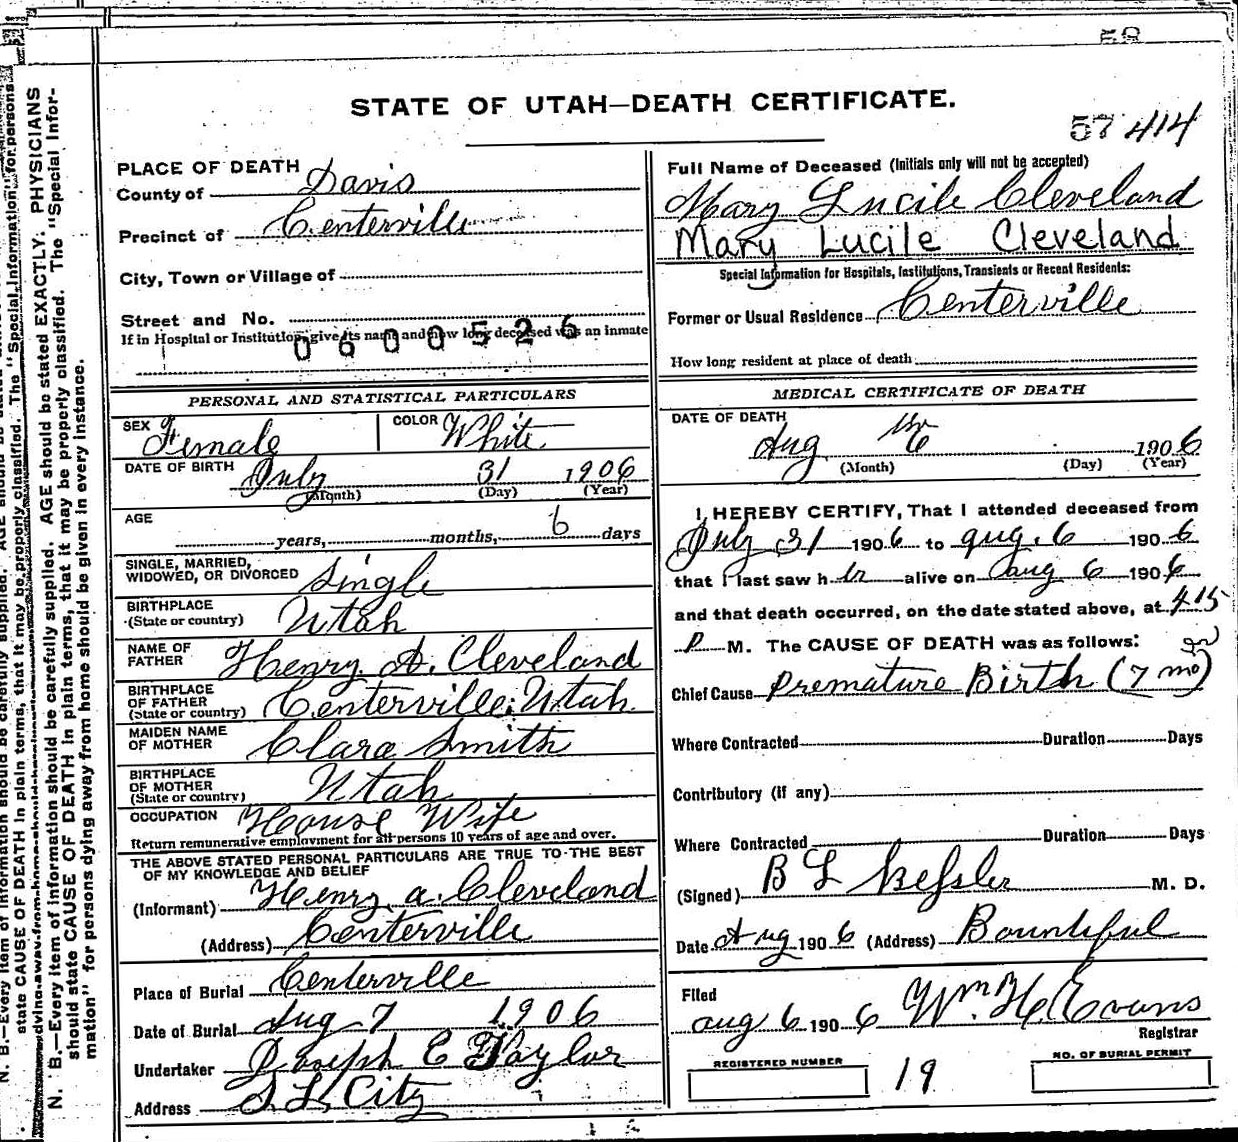 58
STATE OF UTAH—DEATH CERTIFICATE.
57 414
PLACE OF DEATH
County of Davis
Precinct of Centerville
City, Town or Village of
Street and No.
If in Hospital or Institution, give its name and how long deceased was an inmate
0600526
Full Name of Deceased (Initials only will not be accepted)
Mary Lucile Cleveland
Mary Lucile Cleveland
Special Information for Hospitals, Institutions, Transients or Recent Residents:
Former or Usual Residence Centerville
How long resident at place of death
PERSONAL AND STATISTICAL PARTICULARS
SEX Female COLOR White
DATE OF BIRTH July 31 1906
(Month) (Day) (Year)
AGE years, months, 6 days
SINGLE, MARRIED,
WIDOWED, OR DIVORCED Single
BIRTHPLACE
(State or country) Utah
NAME OF
FATHER Henry A. Cleveland
BIRTHPLACE
OF FATHER
(State or country) Centerville, Utah.
MAIDEN NAME
OF MOTHER Clara Smith
BIRTHPLACE
OF MOTHER
(State or country) Utah
OCCUPATION House Wife
Return remunerative employment for all persons 10 years of age and over.
THE ABOVE STATED PERSONAL PARTICULARS ARE TRUE TO THE BEST
OF MY KNOWLEDGE AND BELIEF
(Informant) Henry A. Cleveland
(Address) Centerville
Place of Burial Centerville
Date of Burial Aug 7 1906
Undertaker Joseph E Taylor
Address S. L. City
MEDICAL CERTIFICATE OF DEATH
DATE OF DEATH
Aug 6 1906
(Month) (Day) (Year)
I, HEREBY CERTIFY, That I attended deceased from
July 31 1906 to Aug. 6 1906
that I last saw her alive on Aug 6 1906
and that death occurred, on the date stated above, at 415
P M. The CAUSE OF DEATH was as follows:
Chief Cause Premature Birth (7 mo)
Where Contracted Duration Days
Contributory (if any)
Where Contracted Duration Days
(Signed) B L Kesler M. D.
Date Aug 1906 (Address) Bountiful
Filed
Aug 6 1906 Wm. H. Evans
Registrar
REGISTERED NUMBER 19 NO. OF BURIAL PERMIT
N. B.—Every item of information should be carefully supplied. AGE should be stated EXACTLY. PHYSICIANS
should state CAUSE OF DEATH in plain terms, that it may be properly classified. The "Special Infor-
mation" for persons dying away from home should be given in every instance.